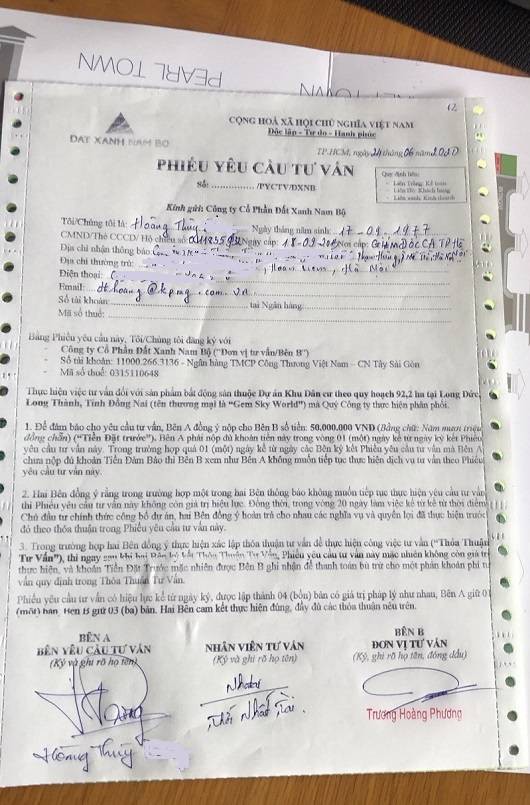 PEARL TOWN
TOWN
12
ĐẤT XANH NAM BỘ
CỘNG HOÀ XÃ HỘI CHỦ NGHĨA VIỆT NAM
Độc lập - Tự do - Hạnh phúc
TP.HCM, ngày 24 tháng 06 năm 2020
PHIẾU YÊU CẦU TƯ VẤN
Số: ............../PYCTV/ĐXNB
Quy định liên:
- Liên Trắng: Kế toán
- Liên Đỏ: Khách hàng
- Liên xanh: Kinh doanh
Kính gửi: Công ty Cổ Phần Đất Xanh Nam Bộ
Tôi/Chúng tôi là: Hoàng Thùy Ngày tháng năm sinh: 17-09-1977
CMND/Thẻ CCCD/ Hộ chiếu số Ngày cấp: 18-09- Nơi cấp: CA TP Hà
Địa chỉ nhận thông báo
Địa chỉ thường trú: , Hà Nội
Điện thoại:
Email: dthoang@kpmg.com.vn
Số tài khoản: tại Ngân hàng
Mã số thuế:
Bằng Phiếu yêu cầu này, Tôi/Chúng tôi đăng ký với
Công ty Cổ Phần Đất Xanh Nam Bộ ("Đơn vị tư vấn/Bên B")
- Số tài khoản: 11000.266.3136 - Ngân hàng TMCP Công Thương Việt Nam – CN Tây Sài Gòn
- Mã số thuế: 0315110648
Thực hiện việc tư vấn đối với sản phẩm bất động sản thuộc Dự án Khu Dân cư theo quy hoạch 92,2 ha tại Long Đức,
Long Thành, Tỉnh Đồng Nai (tên thương mại là "Gem Sky World") mà Quý Công ty thực hiện phân phối.
1. Để đảm bảo cho yêu cầu tư vấn, Bên A đồng ý nộp cho Bên B số tiền: 50.000.000 VND (Bằng chữ: Năm mươi triệu
đồng chẵn) ("Tiền Đặt trước"). Bên A phải nộp đủ khoản tiền này trong vòng 01 (một) ngày kể từ ngày ký kết Phiếu
yêu cầu tư vấn này. Trong trường hợp quá 01 (một) ngày kể từ ngày các Bên ký kết Phiếu yêu cầu tư vấn mà Bên A
chưa nộp đủ khoản Tiền Đảm Bảo thì Bên B xem như Bên A không muốn tiếp tục thực hiện dịch vụ tư vấn theo Phiếu
yêu cầu tư vấn này.
2. Hai Bên đồng ý rằng trong trường hợp một trong hai Bên thông báo không muốn tiếp tục thực hiện yêu cầu tư vấn
thì Phiếu yêu cầu tư vấn này không còn giá trị hiệu lực. Đồng thời, trong vòng 20 ngày làm việc kể từ kể từ thời điểm
Chủ đầu tư chính thức công bố dự án, hai Bên đồng ý hoàn trả cho nhau các nghĩa vụ và quyền lợi đã thực hiện trước
đó theo thỏa thuận trong Phiếu yêu cầu tư vấn này.
3. Trong trường hợp hai Bên đồng ý thực hiện xác lập thỏa thuận tư vấn để thực hiện công việc tư vấn ("Thỏa Thuận
Tư Vấn"), thì ngay sau khi hai Bên ký kết Thỏa Thuận Tư Vấn, Phiếu yêu cầu tư vấn này mặc nhiên không còn giá trị
thực hiện, và khoản Tiền Đặt Trước mặc nhiên được Bên B ghi nhận để thanh toán bù trừ cho một phần khoản phí tư
vấn quy định trong Thỏa Thuận Tư Vấn.
Phiếu yêu cầu tư vấn có hiệu lực kể từ ngày ký, được lập thành 04 (bốn) bản có giá trị pháp lý như nhau, Bên A giữ 01
(một) bản, Bên B giữ 03 (ba) bản. Hai Bên cam kết thực hiện đúng, đầy đủ các thỏa thuận nêu trên.
BÊN A
BÊN YÊU CẦU TƯ VẤN
(Ký và ghi rõ họ tên)
Hoàng Thùy
NHÂN VIÊN TƯ VẤN
(Ký và ghi rõ họ tên)
Thái Nhất Tài.
BÊN B
ĐƠN VỊ TƯ VẤN
(Ký, ghi rõ họ tên, đóng dấu)
Trương Hoàng Phương